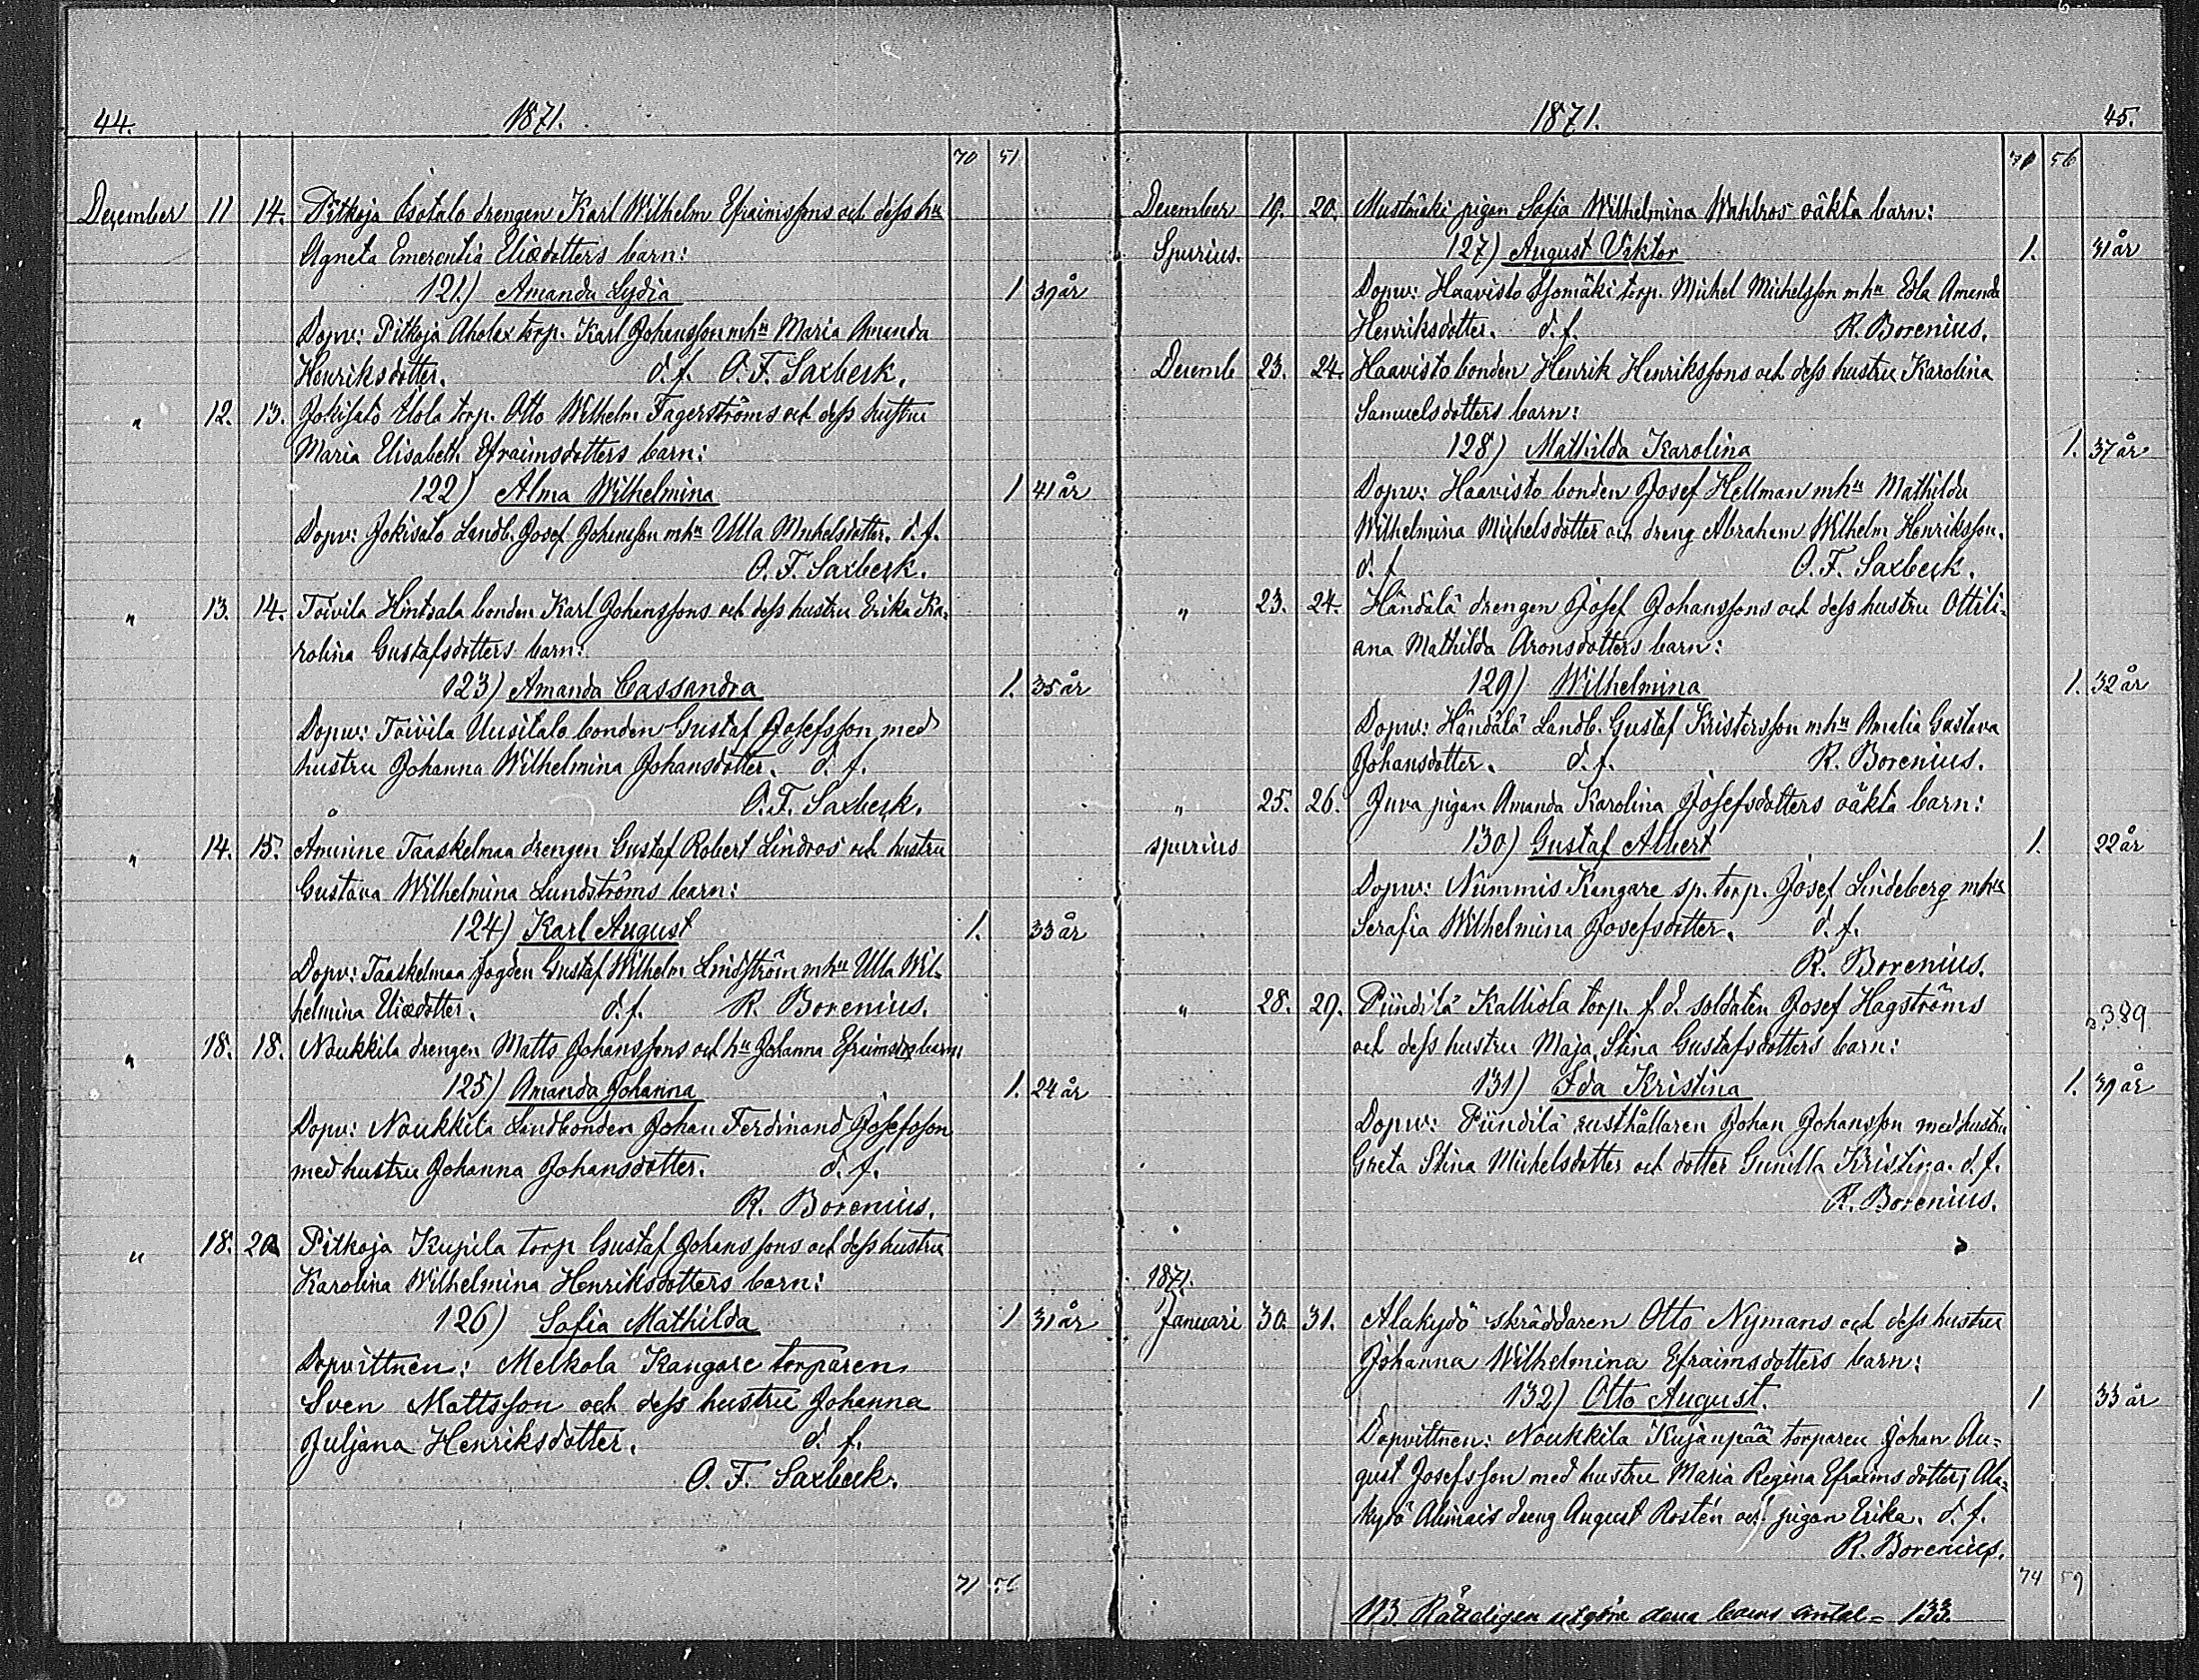 44. 1871.
70 51
December 11 14. Pitkoja Isotalo drengen Karl Wilhelm Efraimssons och dess hu
Agneta Emerentia Eliædotters barn:
121.) Amanda Lydia 1 39 år
Dopv: Pitkoja Ahola torp. Karl Johansson mhu Maria Amanda
Henriksdotter. d. f. O. F. Saxbeck.
" 12. 13. Jokisato Alola torp. Otto Wilhelm Fagerströms och dess hustru
Maria Elisabeth Efraimsdotters barn:
122) Alma Wilhelmina 1 41 år
Dopv: Jokisato Landb. Josef Johansson mhu Ulla Michelsdotter. d. f.
O. F. Saxbeck.
" 13. 14. Toivila Hintsala bonden Karl Johanssons och dess hustru Erika Ka-
rolina Gustafsdotters barn:
123) Amanda Cassandra 1. 35 år
Dopv: Toivila Uusitalo bonden Gustaf Josefsson med
hustru Johanna Wilhelmina Johansdotter. d. f.
O. F. Saxbeck.
" 14. 15. Åminne Taaskelmaa drengen Gustaf Robert Lindroos och hustru
Gustava Wilhelmina Lundströms barn:
124) Karl August 1. 33 år
Dopv: Taaskelmaa fogden Gustaf Wilhelm Lindström mhu Ulla Wil-
helmina Eliædotter. d. f. R. Borenius.
" 18. 18. Noukkila drengen Matts Johanssons och hu Johanna Efraimsdrs barn:
125) Amanda Johanna 1. 24 år
Dopv: Noukkila Landbonden Johan Ferdinand Josefsson
med hustru Johanna Johansdotter. d. f.
R. Borenius.
" 18. 20. Pitkoja Kupila torp Gustaf Johanssons och dess hustru
Karolina Wilhelmina Henriksdotters barn:
126) Sofia Mathilda 1 31 år
Dopvittnen: Melkola Kangare torparen
Sven Mattsson och dess hustru Johanna
Juljana Henriksdotter. d. f.
O. F. Saxbeck.
71 56
1871. 45.
71 56
December 19. 20. Mustmäki pigan Sofia Wilhelmina Wahlros oäkta barn:
Spurius. 127) August Viktor 1. 31 år
Dopv: Haavisto Isomäki torp. Michel Michelsson mhu Edla Amanda
Henriksdotter. d. f. R. Borenius.
Decemb 23. 24. Haavisto bonden Henrik Henrikssons och dess hustru Karolina
Samuelsdotters barn:
128) Mathilda Karolina 1. 37 år
Dopv: Haavisto bonden Josef Hellman mhu Mathilda
Wilhelmina Michelsdotter och dreng Abraham Wilhelm Henriksson.
d. f O. F. Saxbeck.
" 23. 24. Händälä drengen Josef Johanssons och dess hustru Ottili-
ana Mathilda Aronsdotters barn:
129) Wilhelmina 1. 32 år
Dopv: Händälä Landb. Gustaf Kristersson mhu Amalia Gustava
Johansdotter. d. f. R. Borenius.
" 25. 26. Juva pigan Amanda Karolina Josefsdotters oäkta barn:
spurius 130) Gustaf Albert 1. 22 år
Dopv: Nummis Kangare sp. torp. Josef Lindeberg mhu
Serafia Wilhelmina Josefsdotter. d. f.
R. Borenius.
" 28. 29. Piindilä Kalliola torp. f. d. soldaten Josef Hagströms p. 389
och dess hustru Maja Stina Gustafsdotters barn:
131) Ida Kristina 1. 39 år
Dopv: Piindilä rusthållaren Johan Johansson med hustru
Greta Stina Michelsdotter och dotter Gunilla Kristina. d. f.
R. Borenius.
1871.
Januari 30. 31. Alakydö skräddaren Otto Nymans och dess hustru
Johanna Wilhelmina Efraimsdotters barn:
132) Otto August. 1 33 år
Dopvittnen: Noukkila Kujanpää torparen Johan Au-
gust Josefsson med hustru Maria Regina Efraimsdotter; Ala-
kydö Alimais dreng August Rostén och pigan Erika. d. f.
R. Borenius.
74 59
Rätteligen utgöra barns antal = 133.